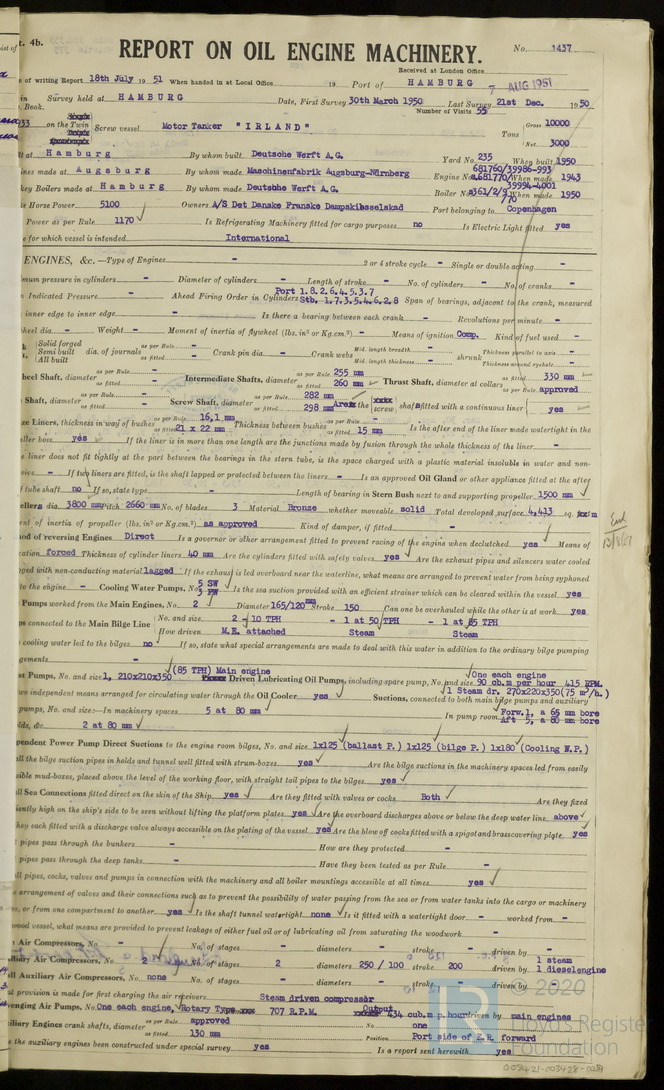 t. 4b.
REPORT ON OIL ENGINE MACHINERY.
No. 1437
Received at London Office
7 AUG 1951
e of writing Report 18th July 19 51 When handed in at Local Office 19 Port of HAMBURG
in Survey held at HAMBURG Date, First Survey 30th March 1950 Last Survey 21st Dec. 1950
. Book. Number of Visits 55
on the Twin Screw vessel Motor Tanker "IRLAND" Tons Gross 10000
Net 3000
lt at Hamburg By whom built Deutsche Werft A.G. Yard No. 235 When built 1950
ines made at Augsburg By whom made Maschinenfabrik Augsburg-Nürnberg Engine No. 681760/39986-993 681770/ When made 1943
key Boilers made at Hamburg By whom made Deutsbhe Werft A.G. Boiler No. 39994-4001 When made 1950
e Horse Power 5100 Owners A/S Det Danske Franske Dampskibsselskad Port belonging to Copenhagen
Power as per Rule 1170 Is Refrigerating Machinery fitted for cargo purposes no Is Electric Light fitted yes
e for which vessel is intended International
ENGINES, &c.—Type of Engines - 2 or 4 stroke cycle - Single or double acting -
mum pressure in cylinders - Diameter of cylinders - Length of stroke - No. of cylinders - No. of cranks -
Indicated Pressure - Ahead Firing Order in Cylinders Port 1.8.2.6.4.5.3.7 Stb. 1.7.3.5.4.6.2.8 Span of bearings, adjacent to the crank, measured
inner edge to inner edge - Is there a bearing between each crank - Revolutions per minute -
heel dia. - Weight - Moment of inertia of flywheel (lbs. in² or Kg.cm.²) - Means of ignition Comp. Kind of fuel used -
Solid forged
Semi built dia. of journals as per Rule - as fitted - Crank pin dia. - Crank webs Mid. length breadth - Mid. length thickness - shrunk Thickness parallel to axis - Thickness around eyehole -
All built
heel Shaft, diameter as per Rule - as fitted - Intermediate Shafts, diameter as per Rule 255 mm as fitted 260 mm Thrust Shaft, diameter at collars as fitted 330 mm as per Rule approved
Shaft, diameter as per Rule - as fitted - Screw Shaft, diameter as per Rule 282 mm as fitted 298 mm Are the screw shafts fitted with a continuous liner yes
ze Liners, thickness in way of bushes as per Rule 16,1 mm as fitted 21 x 22 mm Thickness between bushes as per Rule - as fitted 15 mm Is the after end of the liner made watertight in the
ller boss yes If the liner is in more than one length are the junctions made by fusion through the whole thickness of the liner -
e liner does not fit tightly at the part between the bearings in the stern tube, is the space charged with a plastic material insoluble in water and non-
sive - If two liners are fitted, is the shaft lapped or protected between the liners - Is an approved Oil Gland or other appliance fitted at the after
f tube shaft no If so, state type - Length of bearing in Stern Bush next to and supporting propeller 1500 mm
ellers dia. 3800 mm Pitch 2660 mm No. of blades 3 Material Bronze whether moveable solid Total developed surface 4,413 sq. m
ent of inertia of propeller (lbs. in² or Kg.cm.²) as approved Kind of damper, if fitted -
hod of reversing Engines Direct Is a governor or other arrangement fitted to prevent racing of the engine when declutched yes Means of
cation forced Thickness of cylinder liners 40 mm Are the cylinders fitted with safety valves yes Are the exhaust pipes and silencers water cooled
ged with non-conducting material lagged If the exhaust is led overboard near the waterline, what means are arranged to prevent water from being syphoned
to the engine - Cooling Water Pumps, No. 5 SW 3 FW Is the sea suction provided with an efficient strainer which can be cleared within the vessel yes
Pumps worked from the Main Engines, No. 2 Diameter 165/120 mm Stroke 150 Can one be overhauled while the other is at work yes
ps connected to the Main Bilge Line No. and size 2 - 10 TPH - 1 at 50 TPH - 1 at 85 TPH
How driven M.E. attached Steam Steam
cooling water led to the bilges no If so, state what special arrangements are made to deal with this water in addition to the ordinary bilge pumping
gements -
st Pumps, No. and size 1, 210x210x350 (85 TPH) Main engine Driven Lubricating Oil Pumps, including spare pump, No. and size One each engine 90 cb.m per hour 415 RPM. 1 Steam dr. 270x220x350 (75 m³/h.)
wo independent means arranged for circulating water through the Oil Cooler yes Suctions, connected to both main bilge pumps and auxiliary
pumps, No. and size:—In machinery spaces 5 at 80 mm In pump room Forw.1, a 65 mm bore Aft 5, a 80 mm bore
lds, &c. 2 at 80 mm
pendent Power Pump Direct Suctions to the engine room bilges, No. and size 1x125 (ballast P.) 1x125 (bilge P.) 1x180 (Cooling W.P.)
all the bilge suction pipes in holds and tunnel well fitted with strum-boxes yes Are the bilge suctions in the machinery spaces led from easily
sible mud-boxes, placed above the level of the working floor, with straight tail pipes to the bilges yes
ll Sea Connections fitted direct on the skin of the Ship yes Are they fitted with valves or cocks Both Are they fixed
iently high on the ship's side to be seen without lifting the platform plates yes Are the overboard discharges above or below the deep water line above
hey each fitted with a discharge valve always accessible on the plating of the vessel yes Are the blow off cocks fitted with a spigot and brass covering plate yes
pipes pass through the bunkers - How are they protected -
pipes pass through the deep tanks - Have they been tested as per Rule -
ll pipes, cocks, valves and pumps in connection with the machinery and all boiler mountings accessible at all times yes
arrangement of valves and their connections such as to prevent the possibility of water passing from the sea or from water tanks into the cargo or machinery
es, or from one compartment to another yes Is the shaft tunnel watertight none Is it fitted with a watertight door - worked from -
wood vessel, what means are provided to prevent leakage of either fuel oil or of lubricating oil from saturating the woodwork -
n Air Compressors, No. - No. of stages - diameters - stroke - driven by -
iliary Air Compressors, No. 2 No. of stages 2 diameters 250 / 100 stroke 200 driven by 1 steam 1 dieselengine
ll Auxiliary Air Compressors, No. none No. of stages - diameters - stroke - driven by -
t provision is made for first charging the air receivers Steam driven compressor
enging Air Pumps, No. One each engine, Rotary Type 707 R.P.M. Output 434 cub.m p.hour driven by main engines
iliary Engines crank shafts, diameter as per Rule approved as fitted 130 mm No. one Position Port side of E.R. forward
e the auxiliary engines been constructed under special survey yes Is a report sent herewith yes
© 2020
Lloyd's Register
Foundation
003421-003428-0081